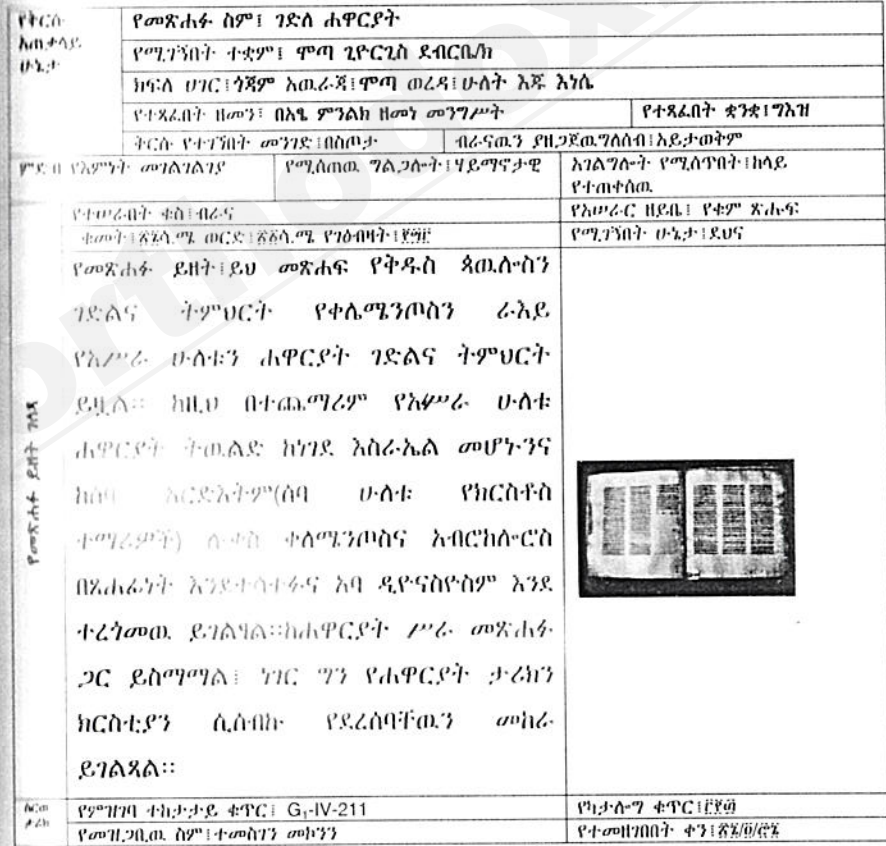 የቅርሱ አጠቃላይ ሁኔታ
የመጽሐፉ ስም፤ ገድለ ሐዋርያት
የሚገኝበት ተቋም፤ ሞጣ ጊዮርጊስ ደብር ቤ/ክ
ክፍለ ሀገር፤ጎጃም አዉራጃ፤ሞጣ ወረዳ፤ሁለት እጁ እነሴ
የተጻፈበት ዘመን፤ በአፄ ምንልክ ዘመነ መንግሥት የተጻፈበት ቋንቋ፤ግእዝ
ቅርሱ የተገኘበት መንገድ፤በስጦታ ብራናዉን ያዘጋጀዉ ግለሰብ፤አይታወቅም
ምድብ የእምነት መገልገልገያ የሚሰጠዉ ግልጋሎት፤ሃይማኖታዊ አገልግሎት የሚሰጥበት፤ከላይ
የተጠቀሰዉ
የተሠራበት ቁስ፤ብራና የአሠራር ዘይቤ፤ የቁም ጽሑፍ
ቁመት ሳ.ሜ ወርድ ሳ.ሜ የገፅብዛት፤ የሚገኝበት ሁኔታ፤ደህና
የመጽሐፉ ይዘት ገለጻ
የመጽሐፉ ይዘት፤ይህ መጽሐፍ የቅዱስ ጳዉሎስን
ገድልና ትምህርት የቀሌሜንጦስን ራእይ
የአሥራ ሁለቱን ሐዋርያት ገድልና ትምህርት
ይዟል። ከዚህ በተጨማሪም የአሥራ ሁለቱ
ሐዋርያት ትዉልድ ከነገደ እስራኤል መሆኑንና
ከሰባ አርድእትም(ሰባ ሁለቱ የክርስቶስ
ተማሪዎች) ሉቃስ ቀለሜንጦስና አብሮከሎሮስ
በጸሐፊነት እንደተሳተፉና አባ ዲዮናስዮስም እንደ
ተረጎመዉ ይገልፃል።ከሐዋርያት ሥራ መጽሐፉ
ጋር ይስማማል፤ ነገር ግን የሐዋርያት ታሪክን
ክርስቲያን ሲሰብኩ የደረሰባቸዉን መከራ
ይገልጻል።
የምዝገባ ተከታታይ ቁጥር፤ G₁-IV-211 የካታሎግ ቁጥር፤
የመዝጋቢዉ ስም፤ተመስገን መኮንን የተመዘገበበት ቀን፤